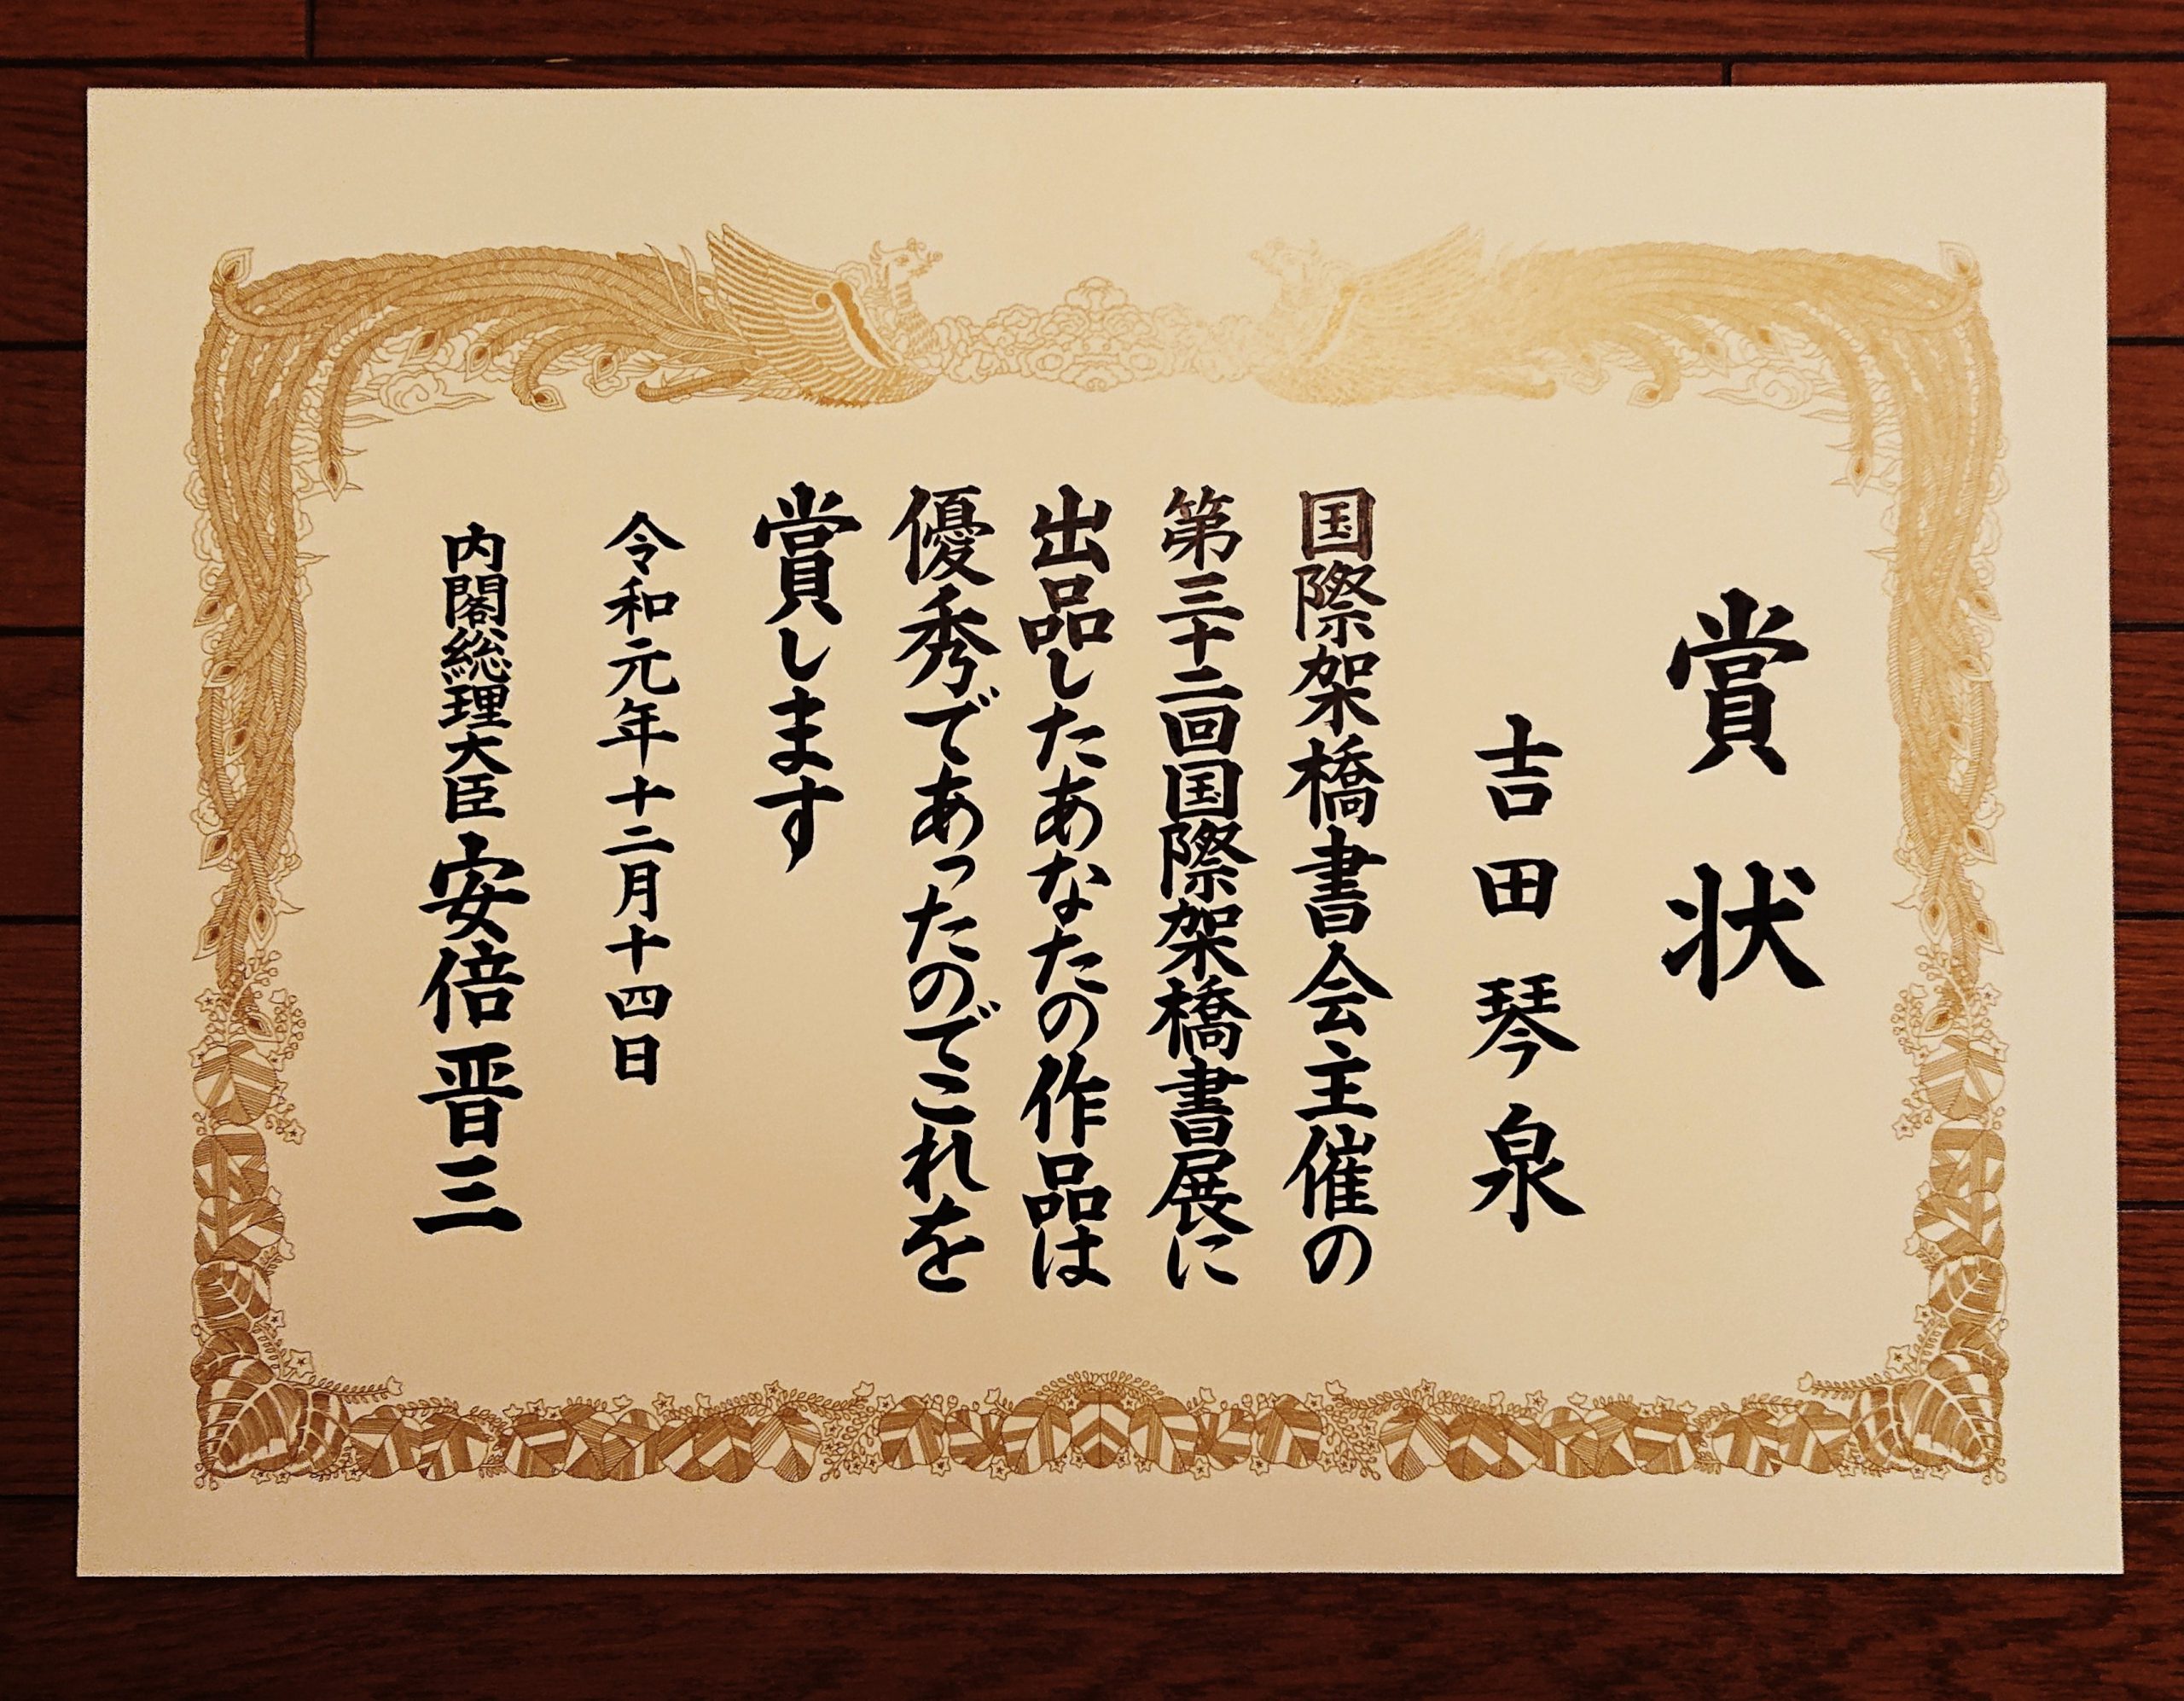 賞状
吉田琴泉
国際架橋書会主催の
第三十二回国際架橋書展に
出品したあなたの作品は
優秀であったのでこれを
賞します
令和元年十二月十四日
内閣総理大臣 安倍晋三